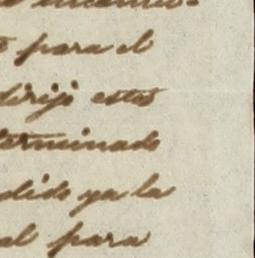 para el
dirijo estos
terminado
dido ya la
al para